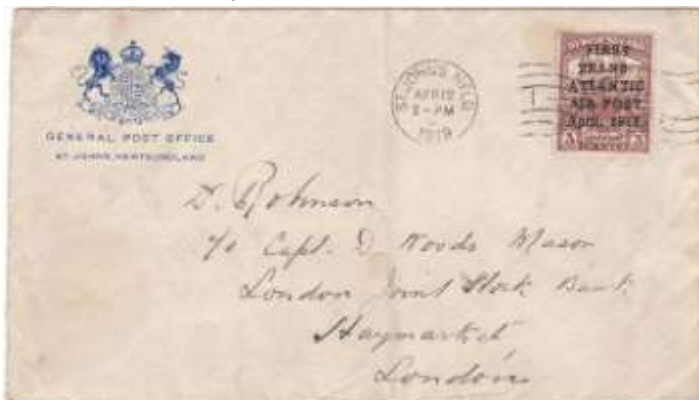 GENERAL POST OFFICE
ST. JOHN'S, NEWFOUNDLAND
ST. JOHN'S, NFLD
APR 12
2-PM
1919
FIRST
TRANS-
ATLANTIC
AIR POST
April, 1919.
D. Robinson
c/o Capt. D Woods Mason
London Joint Stock Bank
Haymarket
London